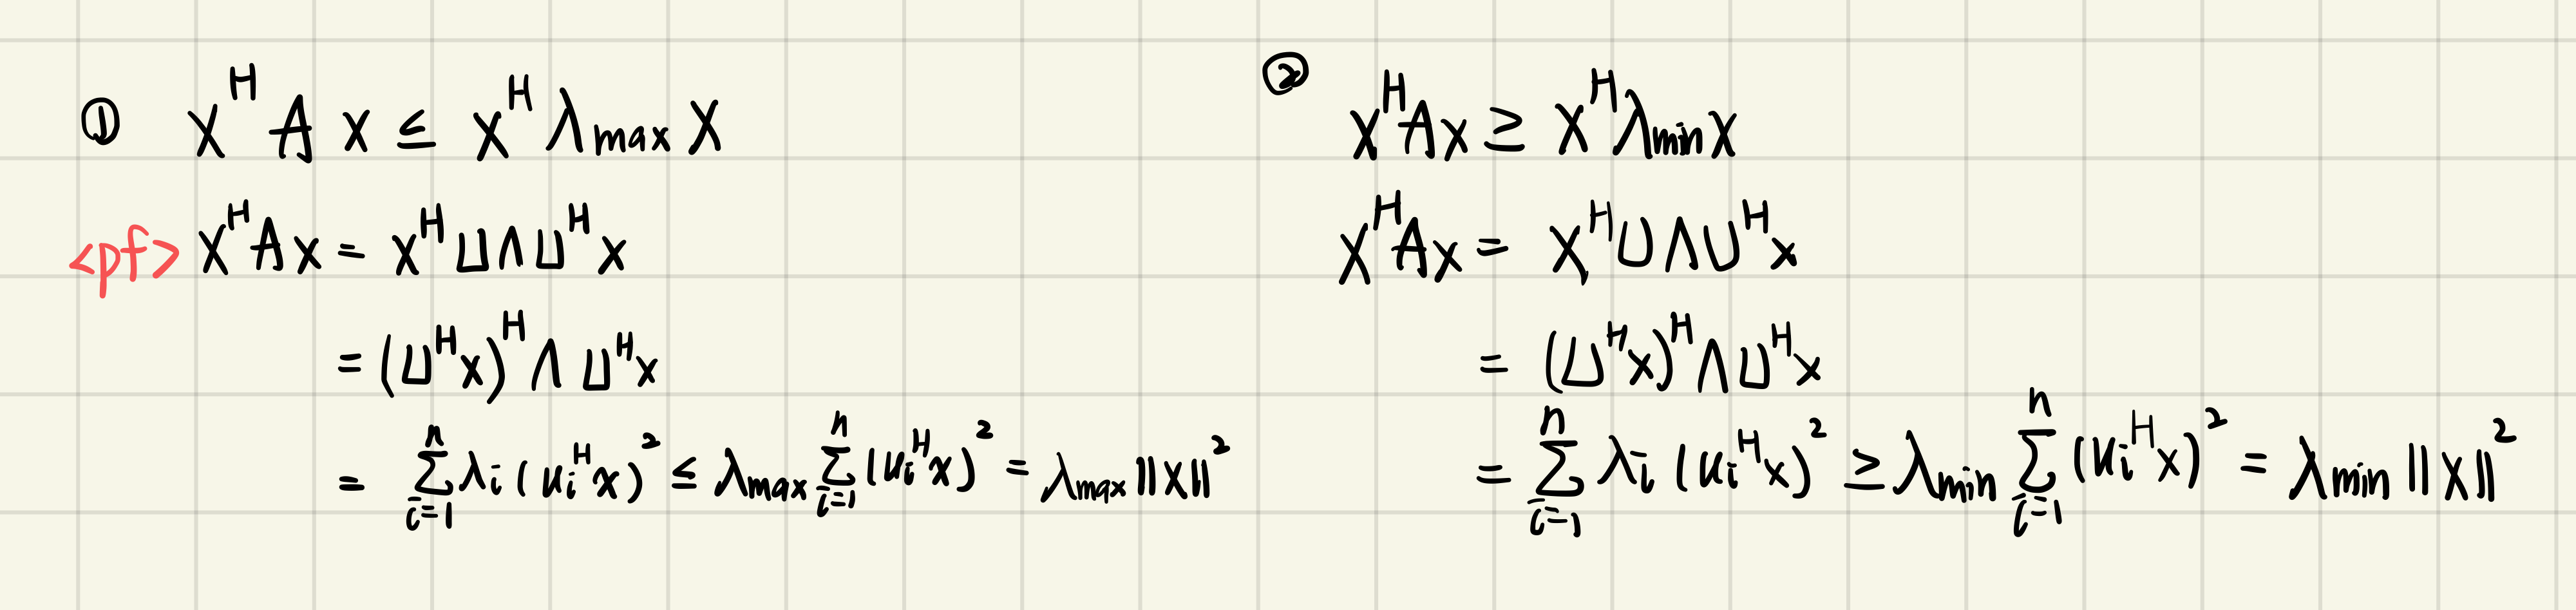 ① x^H A x ≤ x^H λ_max x
<pf> x^H A x = x^H U Λ U^H x
= (U^H x)^H Λ U^H x
= ∑_{i=1}^{n} λ_i (u_i^H x)^2 ≤ λ_max ∑_{i=1}^{n} (u_i^H x)^2 = λ_max ||x||^2
② x^H A x ≥ x^H λ_min x
x^H A x = x^H U Λ U^H x
= (U^H x)^H Λ U^H x
= ∑_{i=1}^{n} λ_i (u_i^H x)^2 ≥ λ_min ∑_{i=1}^{n} (u_i^H x)^2 = λ_min ||x||^2